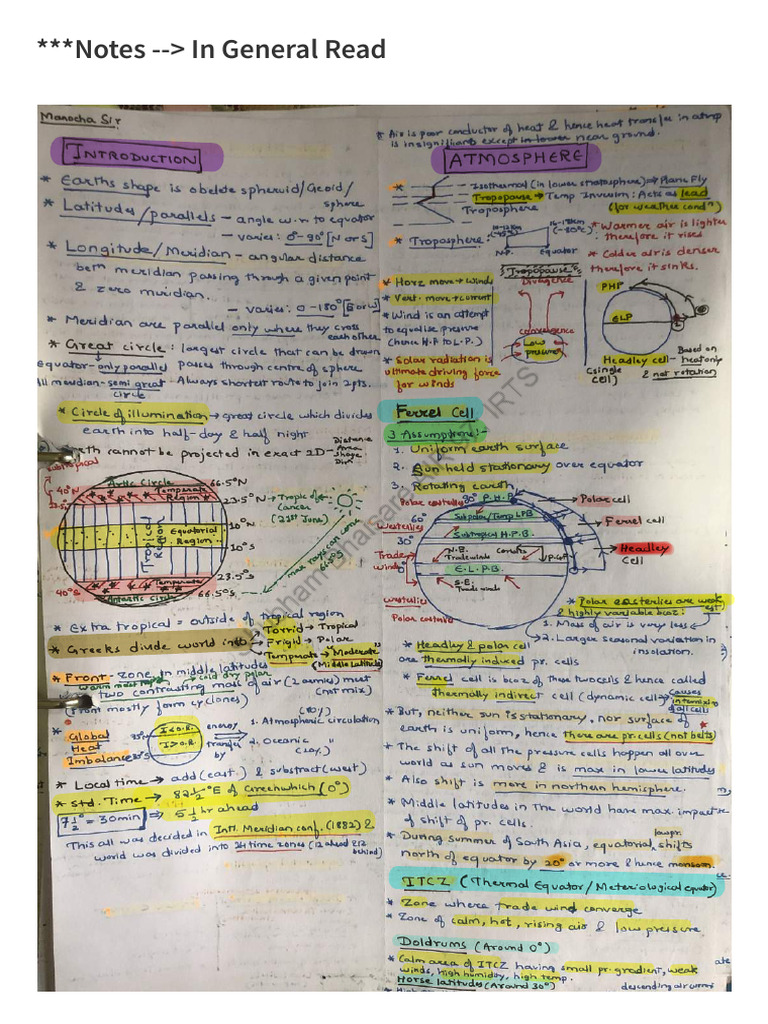 ***Notes --> In General Read
Manocha Sir
INTRODUCTION
* Earths shape is obelde spheruid/Geoid/
sphere
* Latitudes/parallels – angle w.r.to equator
– varies: 0°-90° [N or S]
* Longitude/Meridian – angular distance
betn meridian passing through a given point
& zero meridian.
– varies: 0-180° [E or W]
* Meridian are parallel only where they cross
each other
* Great circle: largest circle that can be drawn
Equator-only parallel passes through centre of sphere
All meridian-semi great circle
Always shortest route to join 2 pts.
* Circle of illumination → great circle which divides
earth into half-day & half night
Earth cannot be projected in exact 2D –
Distance
Area
Shape
Dirn
Subtropical
40°N
Arctic Circle 66.5°N
Temperate
Region
23.5°N → Tropic of
Cancer
(21st June)
10°N
Tropical
Region
Equatorial
Region
10°S
max rays can come
66.5°S
23.5°S
Temperate
40°S
Antarctic Circle 66.5°S
* Extra tropical = outside of tropical region
* Greeks divide world into
Torrid → Tropical
Frigid → Polar
Temperate → "Moderate"
(Middle latitude)
* Front – zone in middle latitudes
warm moist tropical
cold dry polar
two contrasting mass of air (2 armies) meet
(not mix)
(from mostly form cyclones)
* Global
Heat
Imbalance
35°
I<O.R.
I>O.R.
energy
transfer
by
(80%)
1. Atmospheric circulation
2. Oceanic "
(20%)
* Local time → add (east) & substract (west)
* std. Time → 82½°E of Greenwhich (0°)
7½° = 30 min ⇒ 5½ hr ahead
This all was decided in Intl. Meridian conf. (1882) &
world was divided into 24 time zones (12 ahead & 12
behind)
* Air is poor conductor of heat & hence heat transfer in atmp
is insignificant except in lower near ground.
ATMOSPHERE
Isothermal (in lower stratosphere) ⇒ Plane Fly
Tropopause → Temp Inversion: Acts as lead
(for weather condn)
Troposphere
* Troposphere:
10-12km
(-45°C)
16-18km
(-80°C)
N.P.
Equator
* Warmer air is lighter
therefore it rises
* Colder air is denser
therefore it sinks.
* Horz move → winds
* Vert. move → current
* Wind is an attempt
to equalise pressure
(hence H.P to L.P.)
* Solar radiation is
ultimate driving force
for winds
Tropopause
Divergence
convergence
Low
pressure
PHP
ELP
Headley cell –
(single
cell)
Based on
heat only
& not rotation
Ferrel Cell
3 Assumptions:-
1. Uniform earth surface
2. Sun held stationary over equator
3. Rotating earth
Polar easterlies
90°
P.H.P
Polar cell
60°
Subpolar/Temp LPB
Westerlies
Ferrel cell
30°
Subtropical H.P.B.
Headley
Cell
Trade
winds
N.E.
Trade winds
Coriolis
P.G.F
0°
E.L.P.B.
S.E.
Trade winds
Westerlies
Polar easterlies
* Polar easterlies are weakest
& highly variable bcoz:
1. Mass of air is very less
2. Larger seasonal variation in
insolation.
* Headley & polar cell
are thermally induced pr. cells
* Ferrel cell is bcoz of these two cells & hence called
thermally indirect cell (dynamic cell →
Causes
intermixing
of all cells
* But, neither sun is stationary, nor surface of
earth is uniform, hence there are pr. cells (not belts)
* The shift of all the pressure cells happen all over
world as sun moves & is max in lower latitudes
* Also shift is more in northern hemisphere.
* Middle latitudes in the world have max. impact
of shift of pr. cells.
* During summer of South Asia, equatorial low pr. shifts
north of equator by 20° or more & hence monsoon.
ITCZ (Thermal Equator/Meteriological equator)
* Zone where trade wind converge
* Zone of calm, hot, rising air & low pressure
Doldrums (Around 0°)
* Calm area of ITCZ having small pr. gradient, weak
winds, high humidity, high temp.
Horse latitudes (Around 30°)
descending air currents
Shubham Bhaisare
IRTS